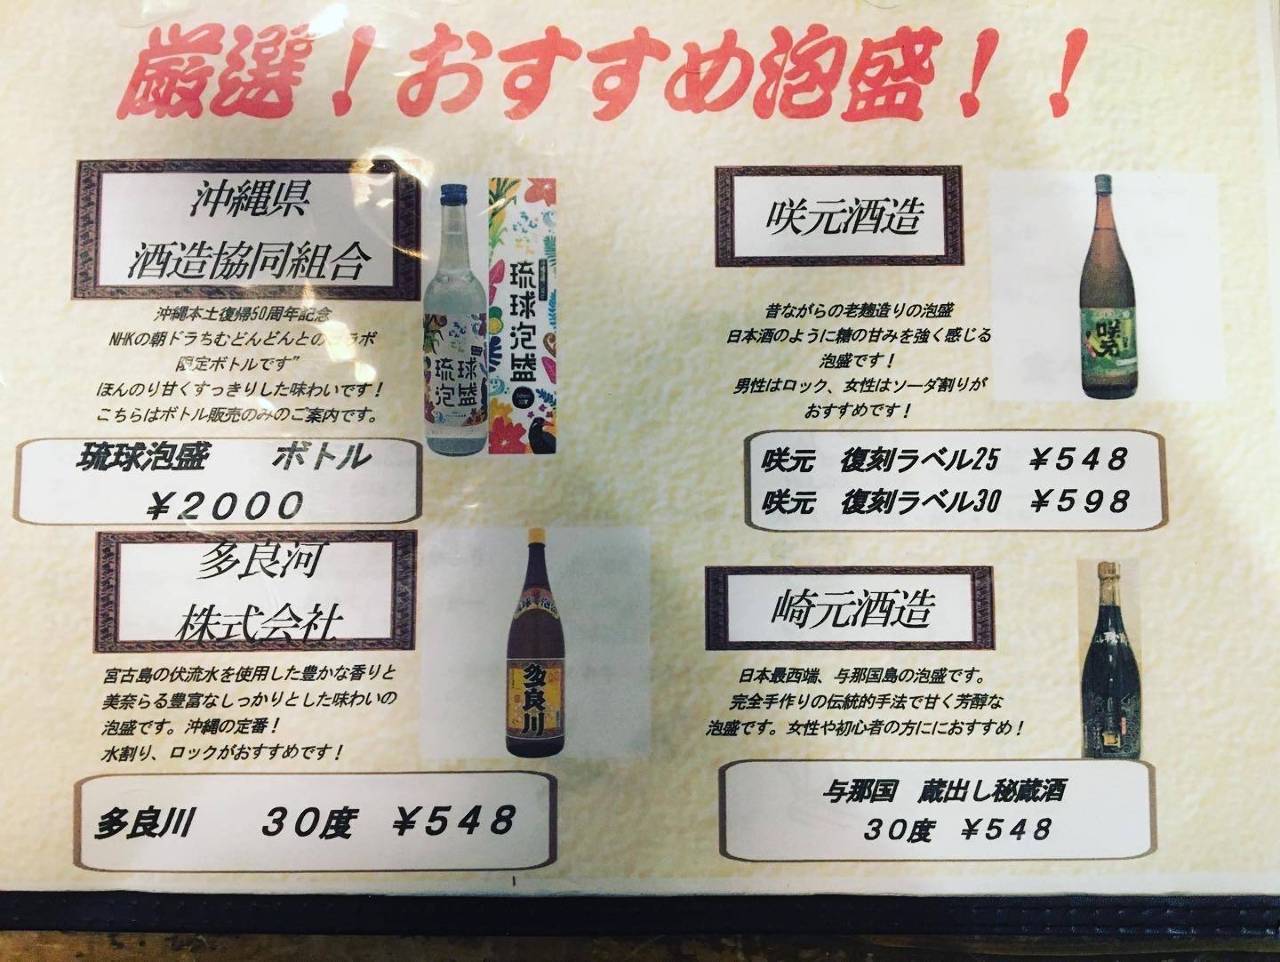 厳選！おすすめ泡盛！！
沖縄県
酒造協同組合
沖縄本土復帰50周年記念
NHKの朝ドラちむどんどんとのコラボ
限定ボトルです”
ほんのり甘くすっきりした味わいです！
こちらはボトル販売のみのご案内です。
琉球泡盛　ボトル
￥２０００
琉球泡盛
琉球泡盛
多良河
株式会社
宮古島の伏流水を使用した豊かな香りと
美奈らる豊富なしっかりとした味わいの
泡盛です。沖縄の定番！
水割り、ロックがおすすめです！
多良川
多良川　３０度　￥５４８
咲元酒造
昔ながらの老麹造りの泡盛
日本酒のように糖の甘みを強く感じる
泡盛です！
男性はロック、女性はソーダ割りが
おすすめです！
咲元
咲元　復刻ラベル25　￥５４８
咲元　復刻ラベル30　￥５９８
崎元酒造
日本最西端、与那国島の泡盛です。
完全手作りの伝統的手法で甘く芳醇な
泡盛です。女性や初心者の方ににおすすめ！
与那国　蔵出し秘蔵酒
３０度　￥５４８